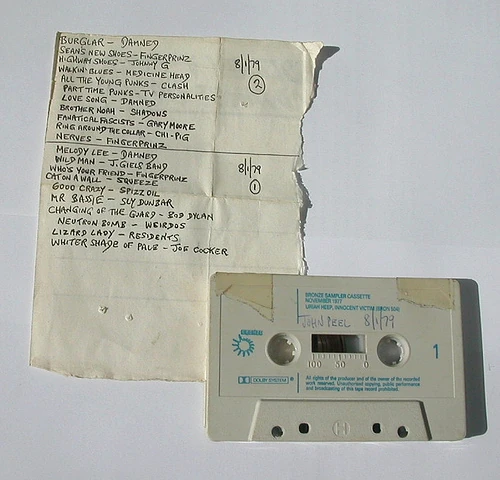 BURGLAR - DAMNED
SEANS NEW SHOES - FINGERPRINZ
HIGHWAY SHOES - JOHNNY G
WALKIN' BLUES - MEDICINE HEAD
ALL THE YOUNG PUNKS - CLASH
PART TIME PUNKS - TV PERSONALITIES
LOVE SONG - DAMNED
BROTHER NOAH - SHADOWS
FANATICAL FASCISTS - GARY MOORE
RING AROUND THE COLLAR - CHI-PIG
NERVES - FINGERPRINZ
8/1/79
2
MELODY LEE - DAMNED
WILD MAN - J. GIELS BAND
WHO'S YOUR FRIEND - FINGERPRINZ
CAT ON A WALL - SQUEEZE
GOOD CRAZY - SPIZZ OIL
MR BASSIE - SLY DUNBAR
CHANGING OF THE GUARD - BOB DYLAN
NEUTRON BOMB - WEIRDOS
LIZARD LADY - RESIDENTS
WHITER SHADE OF PALE - JOE COCKER
8/1/79
1
BRONZE SAMPLER CASSETTE
NOVEMBER 1977
URIAH HEEP, INNOCENT VICTIM (BRON 504)
JOHN PEEL 8/1/79
1
100 50 0
DOLBY SYSTEM
All rights of the producer and of the owner of the recorded
work reserved. Unauthorised copying, public performance
and broadcasting of this tape record prohibited.